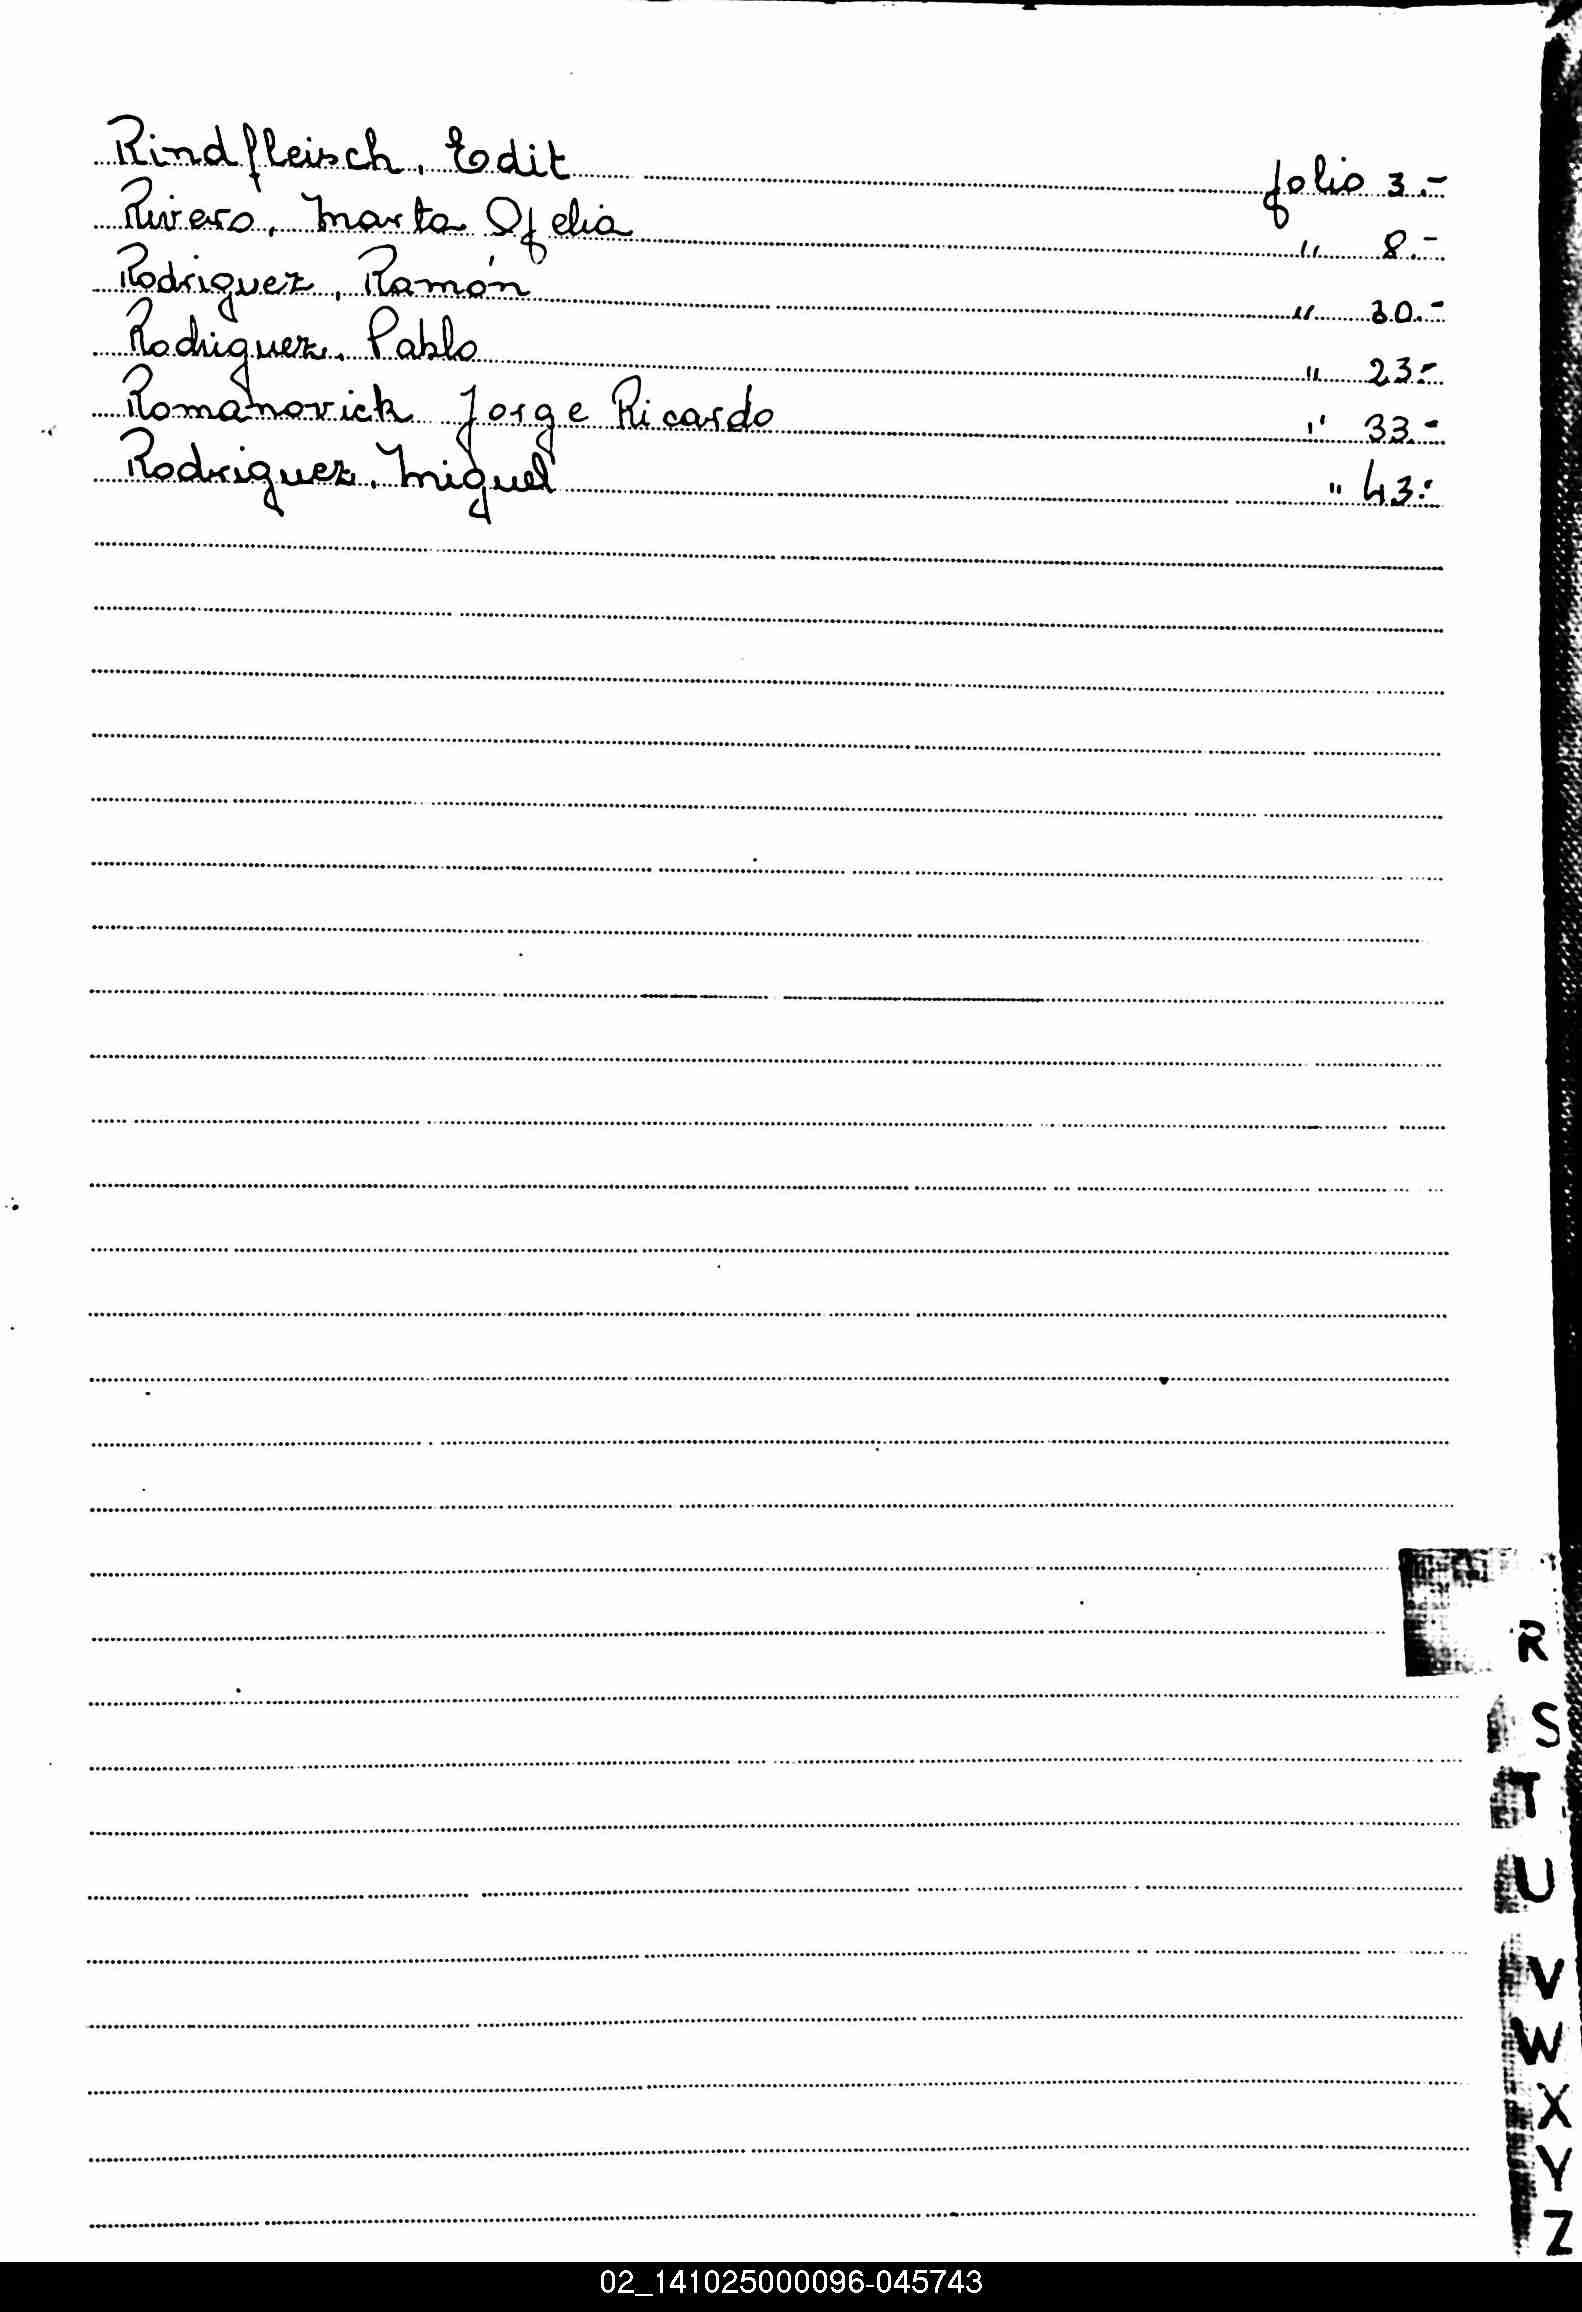 Rindfleisch, Edit folio 3.-
Rivero, Marta Ofelia " 8.-
Rodriguez, Ramón " 20.-
Rodriguez, Pablo " 23.-
Romanovick Jorge Ricardo " 33.-
Rodriguez, Miguel " 43.-
R
S
T
U
V
W
X
Y
Z
02_141025000096-045743